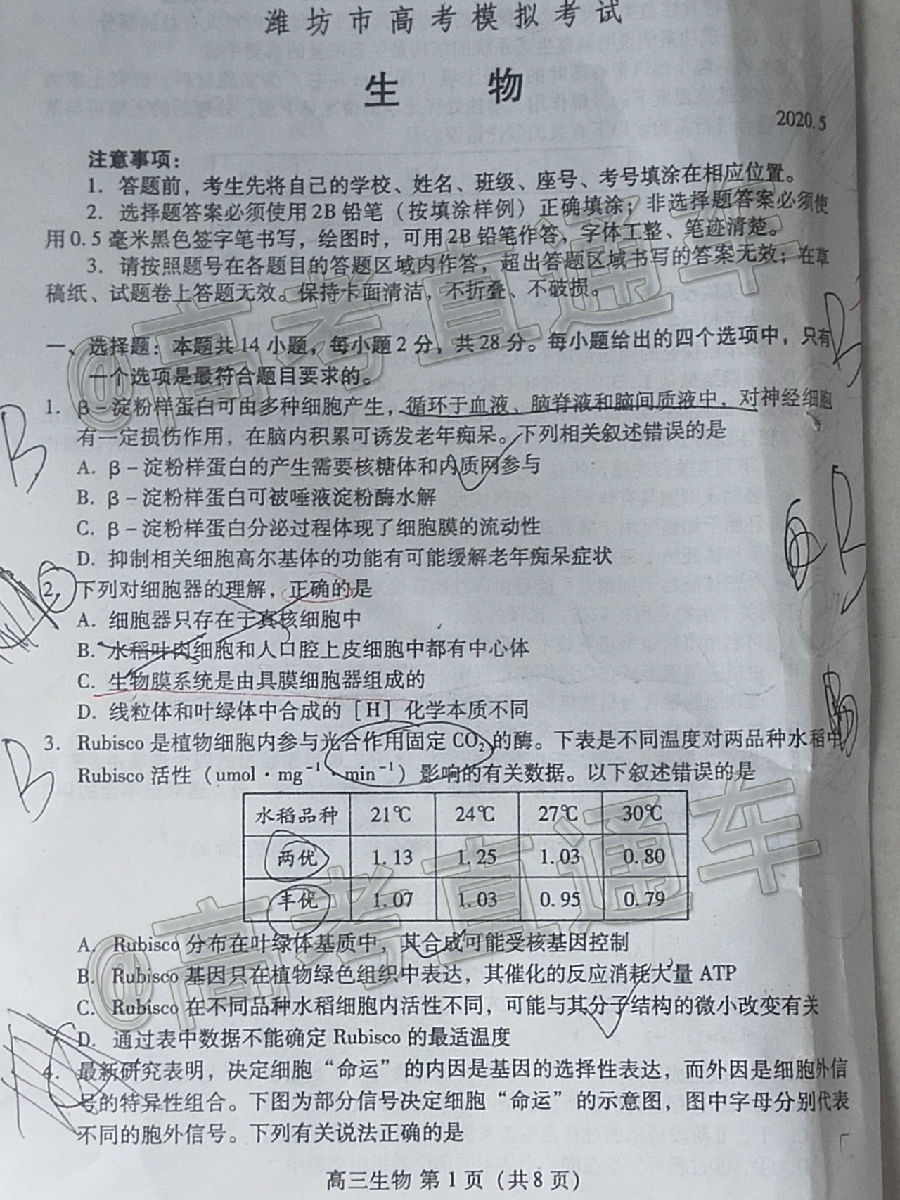 潍坊市高考模拟考试
生 物
2020.5
注意事项：
1. 答题前，考生先将自己的学校、姓名、班级、座号、考号填涂在相应位置。
2. 选择题答案必须使用2B铅笔（按填涂样例）正确填涂；非选择题答案必须使
用0.5毫米黑色签字笔书写，绘图时，可用2B铅笔作答，字体工整、笔迹清楚。
3. 请按照题号在各题目的答题区域内作答，超出答题区域书写的答案无效；在草
稿纸、试题卷上答题无效。保持卡面清洁，不折叠、不破损。
@高考直通车
一、选择题：本题共14小题，每小题2分，共28分。每小题给出的四个选项中，只有
一个选项是最符合题目要求的。
1. β-淀粉样蛋白可由多种细胞产生，循环于血液、脑脊液和脑间质液中，对神经细胞
有一定损伤作用，在脑内积累可诱发老年痴呆。下列相关叙述错误的是
B
A. β-淀粉样蛋白的产生需要核糖体和内质网参与
B. β-淀粉样蛋白可被唾液淀粉酶水解
C. β-淀粉样蛋白分泌过程体现了细胞膜的流动性
D. 抑制相关细胞高尔基体的功能有可能缓解老年痴呆症状
2. 下列对细胞器的理解，正确的是
A. 细胞器只存在于真核细胞中
B. 水稻叶肉细胞和人口腔上皮细胞中都有中心体
C. 生物膜系统是由具膜细胞器组成的
D. 线粒体和叶绿体中合成的［H］化学本质不同
3. Rubisco是植物细胞内参与光合作用固定CO₂的酶。下表是不同温度对两品种水稻中
Rubisco活性（umol·mg⁻¹·min⁻¹）影响的有关数据。以下叙述错误的是
B
水稻品种 21℃ 24℃ 27℃ 30℃
两优 1.13 1.25 1.03 0.80
丰优 1.07 1.03 0.95 0.79
@高考直通车
A. Rubisco分布在叶绿体基质中，其合成可能受核基因控制
B. Rubisco基因只在植物绿色组织中表达，其催化的反应消耗大量ATP
C. Rubisco在不同品种水稻细胞内活性不同，可能与其分子结构的微小改变有关
D. 通过表中数据不能确定Rubisco的最适温度
4. 最新研究表明，决定细胞“命运”的内因是基因的选择性表达，而外因是细胞外信
号的特异性组合。下图为部分信号决定细胞“命运”的示意图，图中字母分别代表
不同的胞外信号。下列有关说法正确的是
高三生物 第1页（共8页）